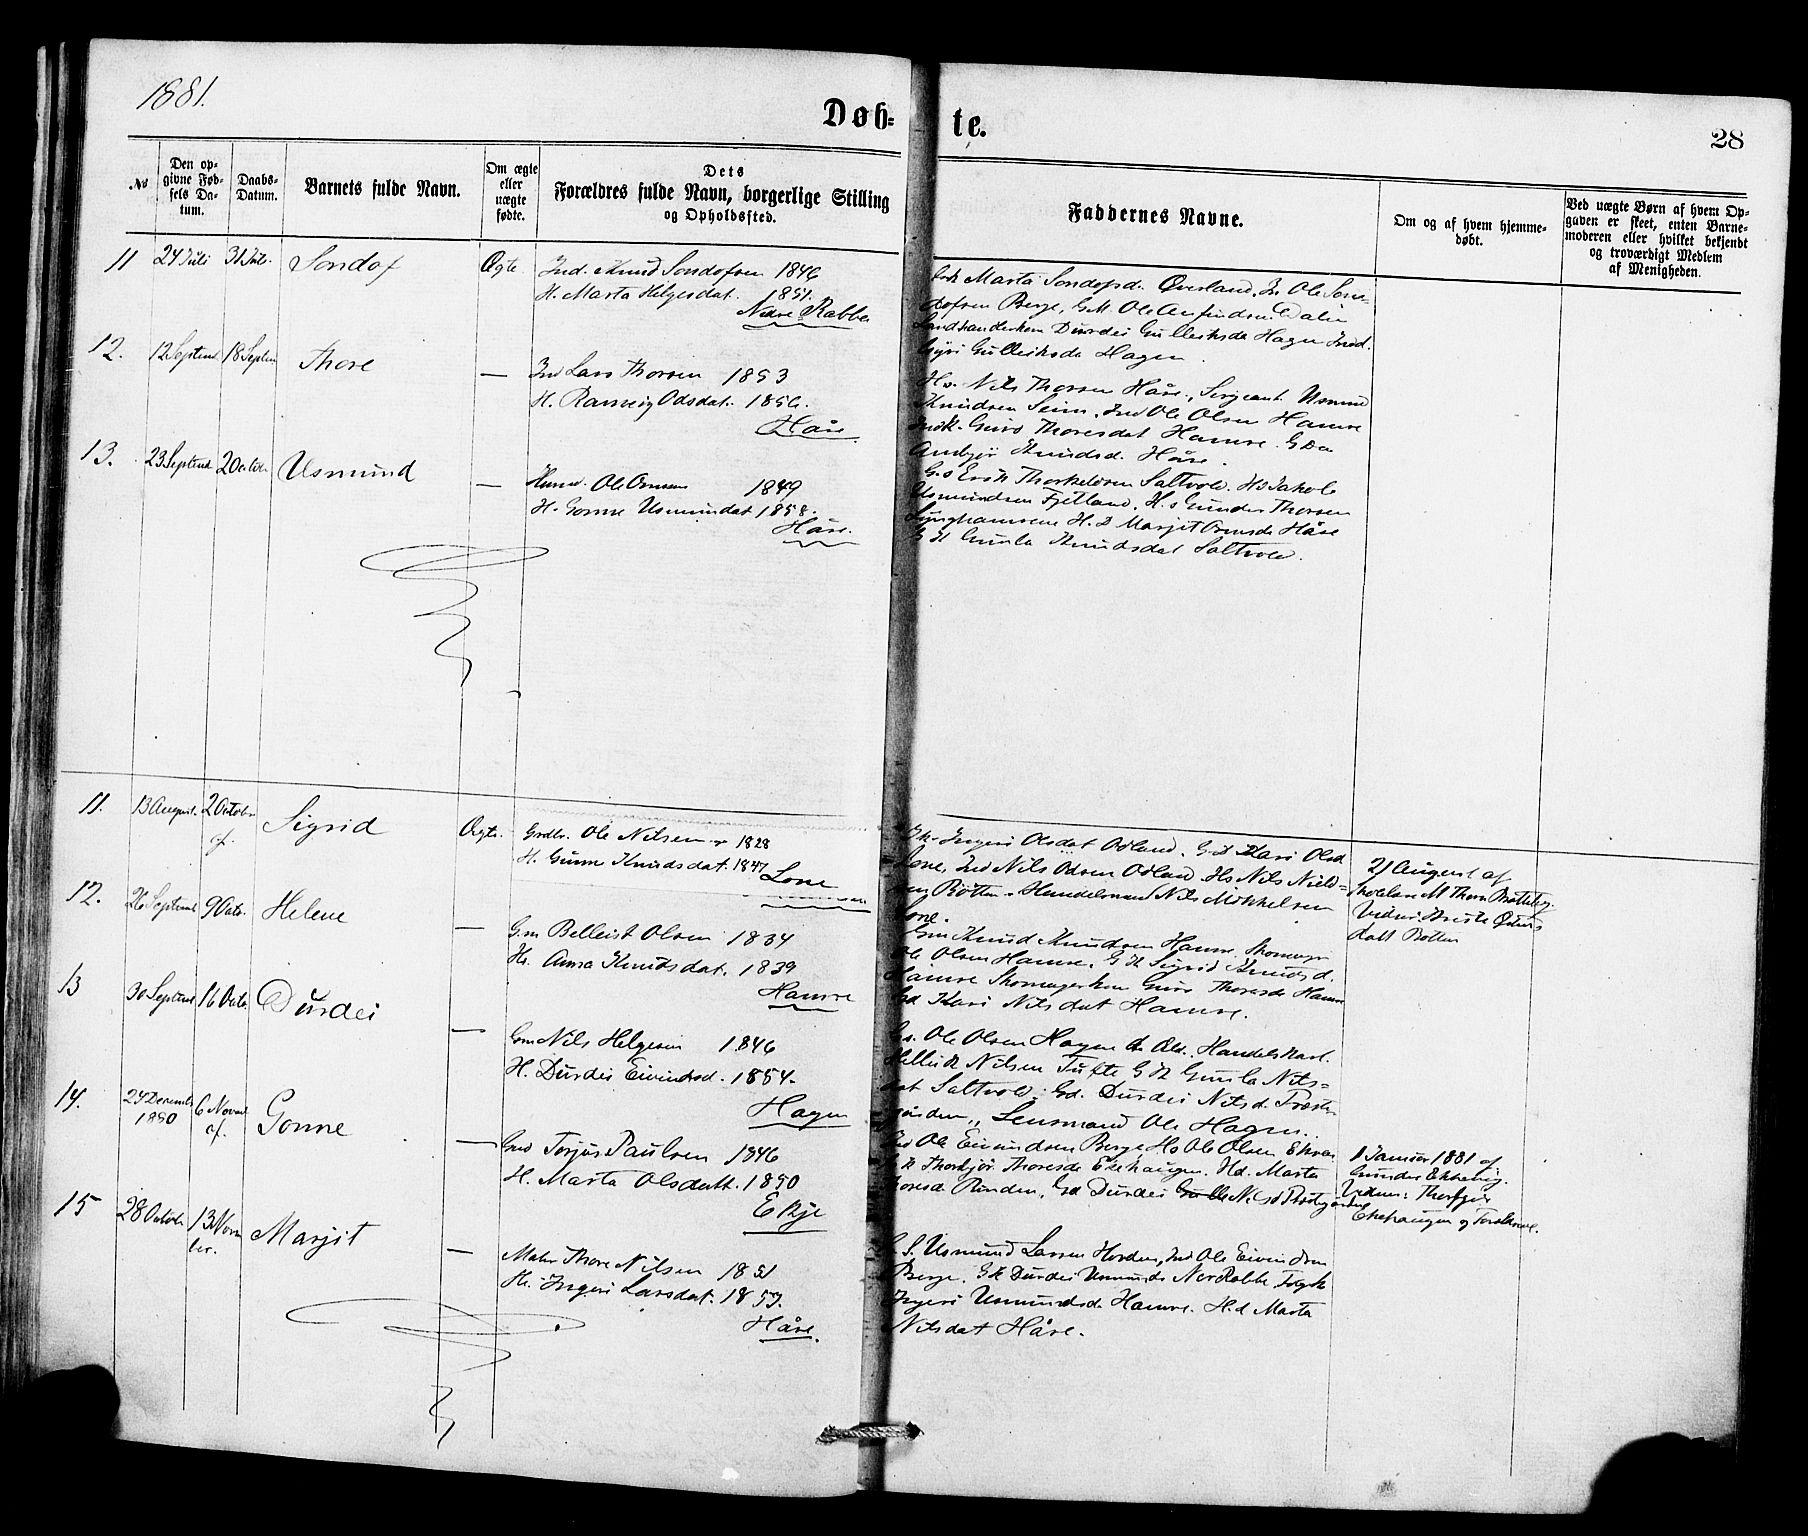 1881.
Døb-
te.
28
No
Den op-
givne Fød-
sels Da-
tum.
Daabs-
Datum.
Barnets fulde Navn.
Om ægte
eller
uægte
fødte.
Dets
Forældres fulde Navn, borgerlige Stilling
og Opholdssted.
Faddernes Navne.
Om og af hvem hjemme-
døbt.
Ved uægte Børn af hvem Op-
gaven er skeet, enten Barne-
moderen eller hvilket bekjendt
og troværdigt Medlem
af Menigheden.
11 24 Juli 31 Jul. Sondof Ægte Ind. Knud Sondofsen 1846
H. Marta Helgesdat. 1851.
Nedre Rabbe
Marta Sondofsd. Øverland, In Ole Son-
dofsen Berge, G.M. Ole Anfindsen Dalen
Durdei Gulleiksda Hagen Ind.
Gyri Gulleiksda Hagen.
12. 12 Septemb 18 Septem Thore — Ind Lars Thorsen 1853
H. Ranveig Odsdat. 1856.
Håre
Hs. Nils Thorsen Håre, Sergeant Usmund
Knudsen Seim, Ind Ole Olsen Hamre
Indk. Guro Thoresdat Hamre. G Da
Anbjør Knudsd. Håre.
13. 23 Septemb 2 Octobr Usmund — Husm. Ole Ormsen 1849
H. Gonne Usmundat 1858.
Håre.
G.s Erik Thorkelsen Saltvold. Hs Jakob
Usmundsen Fjetland. H. s Gunder Thorsen
H. D Marjit Ormsda Håre
G K Gunla Knudsdat Saltvold.
11. 13 August. 2 Octobr Sigrid Ægte. Grdbr. Ole Nilsen 1828
cf.
H. Gunne Knudsdat. 1847
Lone
Ik. Ingeri Olsdat Odland. G.K Kari Olsd
Lone, Ind Nils Odsen Odland Hs Nils Niels-
sen Botten. Handelsmand Nils Mikkelsen
Lone.
21 August af
M Thorn Bratteteig.
Vidner: Anste
datt Botten
12. 26 Septemb 9 Octo. Helene — G.m Belleist Olsen 1834
H. Anna Knudsdat. 1839
Hamre
Gm Knud Knudsen Hamre. Skomager
Ole Olsen Hamre. G K Sigrid Knudsd.
Hamre Skomagerkon Guro Thoresda Hamre
Gd Kari Nilsdat Hamre.
13 30 Septemb 16 Octo. Durdei — Gm Nils Helgesen 1846
H. Durdei Eivindsd. 1854.
Hagen
Gs. Ole Olsen Hagen Handelskarl.
Helleik Nilsen Tufte G K Gunla Nils-
dat Saltvold. Gd. Durdei Nilsd. Præste-
gården, Lensmand Ole Hagen.
14. 24 Decemb 6 Novemb Gonne — Gmd Torjus Paulsen 1846
1880 cf.
H. Marta Olsdatt. 1850
Ekje
Ind Ole Eivindsen Berge Hs Ole Olsen
G K Thorbjør Thoresda Ekehaugen. Hd. Marta
Toresd. Rinden, Gd Durdei Nilsd Præstgården
1 Januar 1881 af
Gunder
Vidner: Thorbjør
Ekehaugen og
15 28 Octob 13 Novem Marjit — Thore Nilsen 1851
ber.
H. Ingeri Larsdat. 1853.
Håre.
G. S. Usmund Larsen Ind Ole Eivindsen
Berge. G K Durdei Usmundsd Ned Rabbe.
Ingeri Usmundsda Hamre. H.d Marta
Nilsdat Håre.